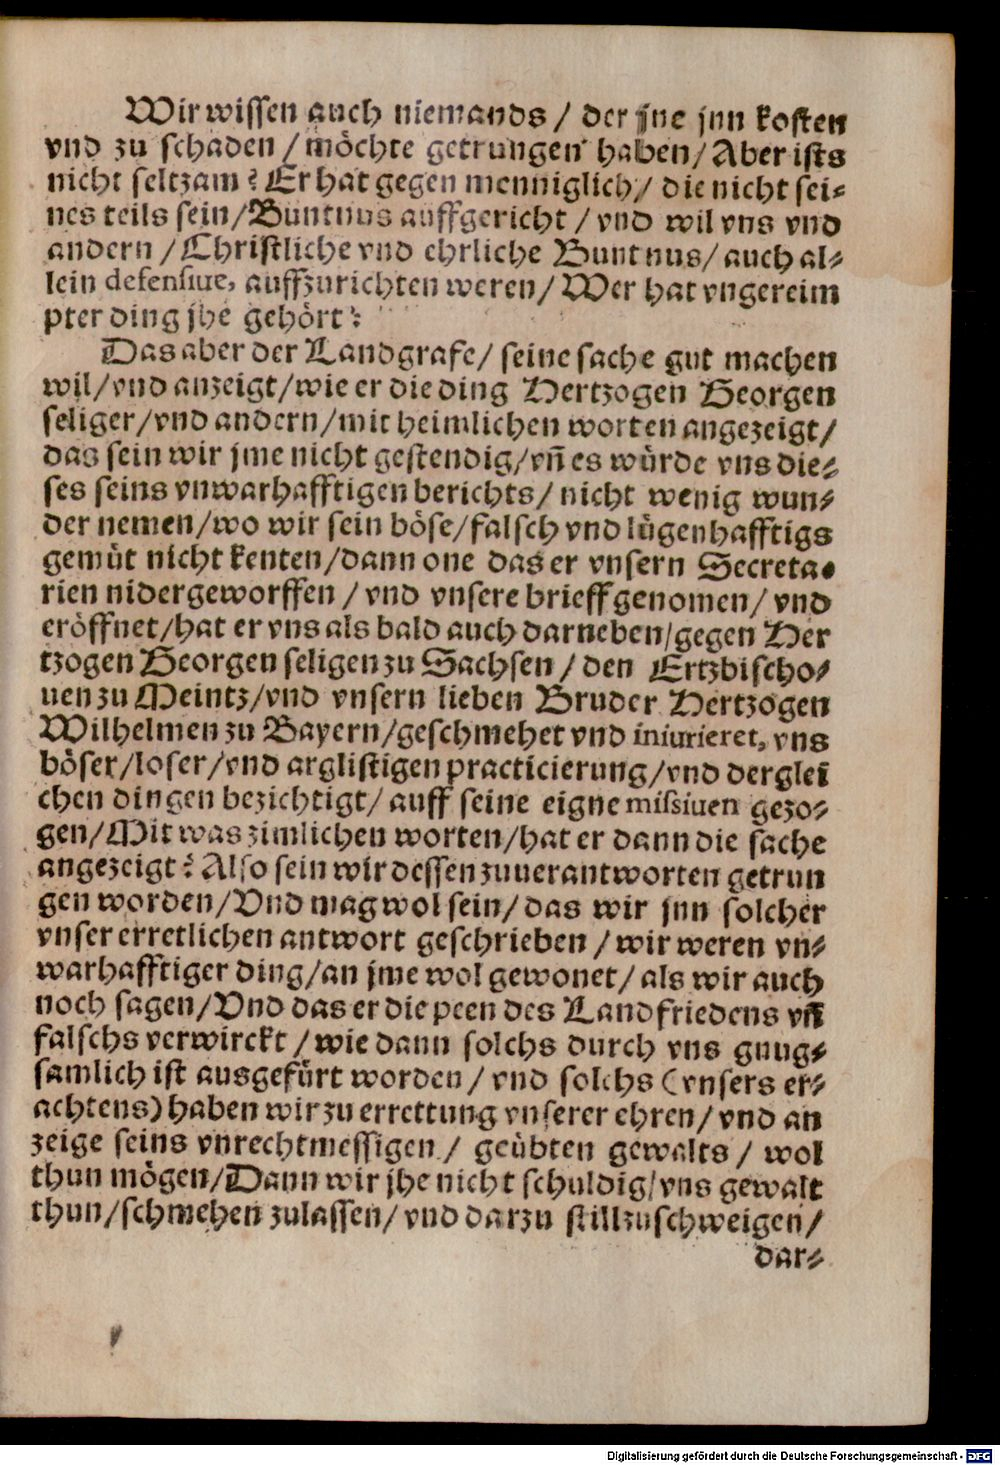 Wir wissen auch niemands / der jne jnn kosten
vnd zu schaden / möchte getrungen haben / Aber ists
nicht seltzam? Er hat gegen menniglich / die nicht sei⸗
nes teils sein / Buntnus auffgericht / vnd wil vns vnd
andern / Christliche vnd ehrliche Buntnus / auch al⸗
lein defensiue, auffzurichten weren / Wer hat vngereim
pter ding jhe gehört?
Das aber der Landgrafe / seine sache gut machen
wil / vnd anzeigt / wie er die ding Hertzogen Georgen
seliger / vnd andern / mit heimlichen worten angezeigt /
das sein wir jme nicht gestendig / vñ es würde vns die⸗
ses seins vnwarhafftigen berichts / nicht wenig wun⸗
der nemen / wo wir sein böse / falsch vnd lügenhafftigs
gemüt nicht kenten / dann one das er vnsern Secreta⸗
rien nidergeworffen / vnd vnsere brieff genomen / vnd
eröffnet / hat er vns als bald auch darneben / gegen Her
tzogen Georgen seligen zu Sachsen / den Ertzbischo⸗
uen zu Meintz / vnd vnsern lieben Bruder Hertzogen
Wilhelmen zu Bayern / geschmehet vnd iniurieret, vns
böser / loser / vnd arglistigen practicierung / vnd dergleī
chen dingen bezichtigt / auff seine eigne missiuen gezo⸗
gen / Mit was zimlichen worten / hat er dann die sache
angezeigt? Also sein wir dessen zuuerantworten getrun
gen worden / Vnd mag wol sein / das wir jnn solcher
vnser erretlichen antwort geschrieben / wir weren vn⸗
warhafftiger ding / an jme wol gewonet / als wir auch
noch sagen / Vnd das er die peen des Landfriedens vñ
falschs verwirckt / wie dann solchs durch vns gnug⸗
samlich ist ausgefürt worden / vnd solchs (vnsers er⸗
achtens) haben wir zu errettung vnserer ehren / vnd an
zeige seins vnrechtmessigen / geübten gewalts / wol
thun mögen / Dann wir jhe nicht schuldig / vns gewalt
thun / schmehen zulassen / vnd darzu stillzuschweigen /
dar⸗
Digitalisierung gefördert durch die Deutsche Forschungsgemeinschaft - DFG